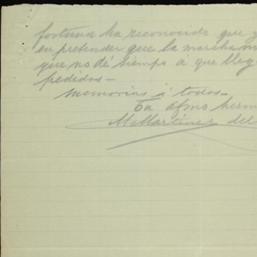 fortuna ha reconocido que y
en pretender que la marcha
que no dé tiempo a que lleg
pedidos—
memorias á todos—
Tu afmo herm
M Martinez del